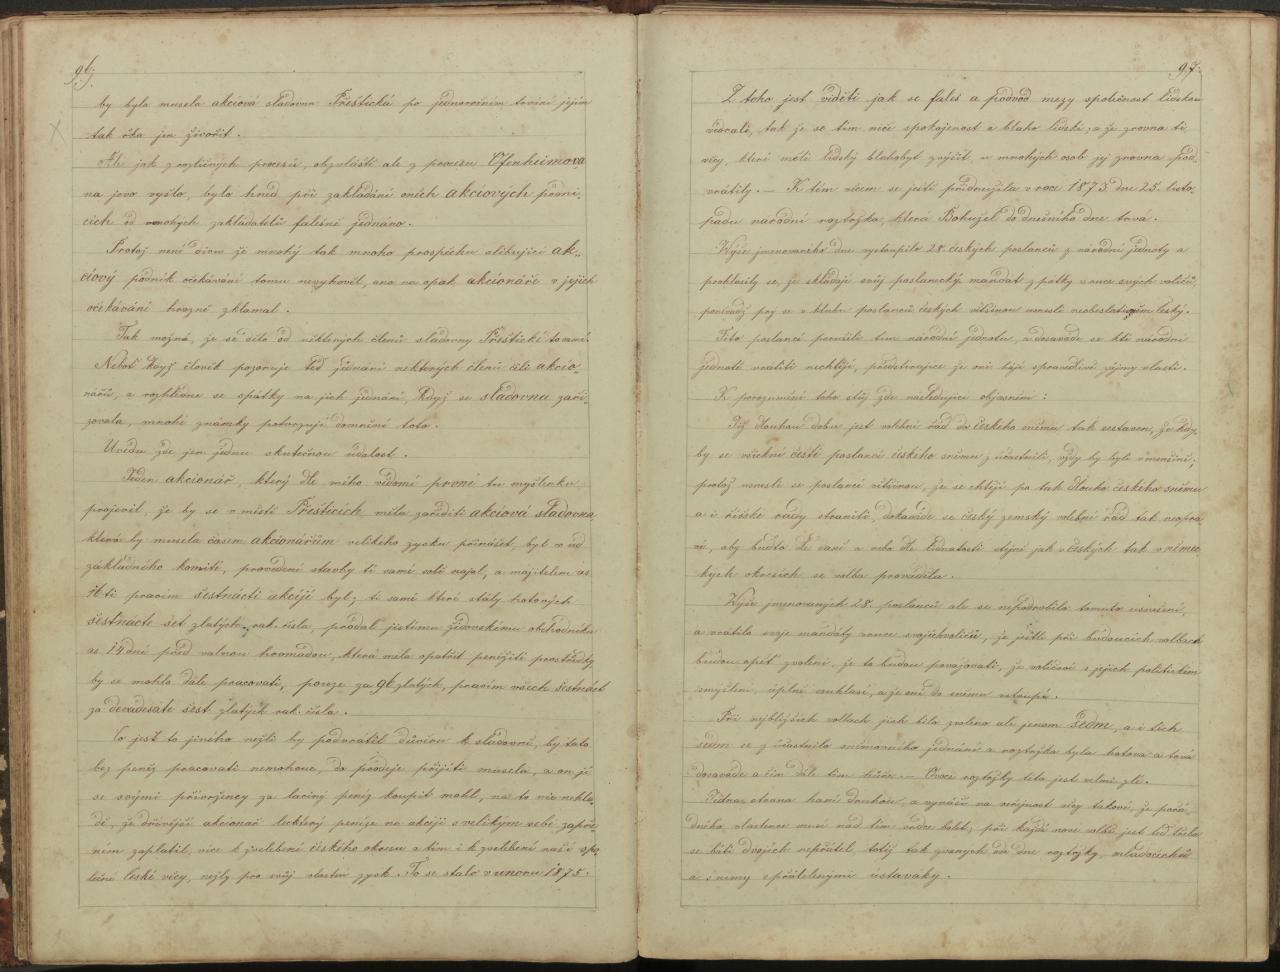 96.
by byla musela akciová sladovna Přeštická po jednoročním trvání jejím
tak řka jen živořit.
Ale jak z rozličných procesů, obzvláště ale z procesu Ofenheimova
na jevo vyšlo, bylo hned při zakládání oněch akciových podni-
cích od mnohých zakladatelů falešně jednáno.
Protož není divu že mnohý tak mnoho prospěchu slibující ak-
ciový podnik očekávání tomu nevyhověl, ano na opak akcionáře v jejich
očekávání hrozně zklamal.
Tak možná, že se dělo od některých členů sladovny Přeštické to samé.
Neboť když člověk pozoruje teď jednání některých členů čili akcio-
nářů, a rozhlédne se zpátky na jich jednání, když se sladovna zaři-
zovala, mnohé známky potvrzují domnění toto.
Uvedu zde jen jednu skutečnou událost.
Jeden akcionář, který dle mého vědomí první tu myšlenku
projevil, že by se v městě Přešticích měla zaříditi akciová sladovna,
která by musela časem akcionářům velikého zysku přinášet, byl v úd
základního komité, provedení stavby té samé
pracím šestnácti akcijí byl; té samé které stály hotových
šestnácte set zlatých rak. čísla, prodal jistému židovskému obchodníku
as 14 dní před valnou hromadou, která měla opatřit peněžité prostředky
by se mohlo dále pracovati, pouze za 96 zlatých, pravím všech šestnáct
za devadesáte šest zlatých rak. čísla.
Co jest to jiného nežli by podvrátil důvěru k sladovně, by tato
bez peněz pracovati nemohouc, do prodeje přijíti musela, a on ji
se svými přívrženci za laciný peníz koupit mohl, na to nic nehle-
dě, že dřívější akcionář leckterý peníze na akciji s velikým sebe zapře-
ním zaplatil, více k zvelebení českého okresu a tím i k zvelebení naší spo-
lečné české věcy, nežly pro svůj vlastní zysk. To se stalo v unoru 1875.
97.
Z toho jest viděti jak se faleš a podvod mezy společnost lidskou
vedrali, tak že se tím ničí spokojenost a blaho lidské; a že zrovna ti
věcy, které měli lidský blahobyt zvýšit, u mnohých osob jej zrovna pod-
vrátily. — K těm věcem se ještě přidružila v roce 1875 dne 25. listo-
padu národní roztržka, která Bohužel do dnešního dne trvá.
Výše jmenovaného dne vystoupilo 28. českých poslanců z národní jednoty a
prohlásily se, že skládají svůj poslanecký mandát zpátky v ruce svých voličů,
poněvadž prý se v klubu poslanců českých většinou usnesli
Tito poslanci přerušili tím národní jednotu, a dosavade se k té národní
jednotě vrátiti nechtějí, předstírajíce že oni hájí spravedlivé zájmy vlasti.
K porozumění toho stůj zde následující objasnění:
Již dlouhou dobu jest volební řád do českého sněmu tak sestaven, že kdy-
by se všickni čeští poslanci českého sněmu zúčastnili, vždy by byli v menšině;
protož usnesli se poslanci většinou, že se chtějí po tak dlouho českého sněmu
a i říšské rady straniti, dokavade se český zemský volební řád tak neopra-
ví, aby buďto dle daně a neb dle lidnatosti stejně jak v českých tak v němec-
kých okresích se volba prováděla.
Výše jmenovaných 28. poslanců ale se nepodrobilo tomuto usnešení,
a vrátilo svoje mandáty v ruce svojich voličů, že jestli při budoucích volbách
budou opět zvoleni, že to budou považovati, že voličové s jejich politickém
smýšlení, úplně souhlasí, a že oni do sněmu vstoupí.
Při nejbližších volbách jich bylo zvoleno ale jenom sedm, a i těch
sedm se zúčastnilo sněmovního jednání a roztržka byla hotova a trvá
dosavade a čím dále tím hůře. — Ovoce roztržky této jest velmi zlé.
Jedna strana haní druhou, a vynáší na veřejnost věcy takové, že pořá-
dného vlastence musí nad tím srdce bolet; při každé nové volbě jest teď třeba
se báti dvojích nepřátel, totiž tak zvaných ode dne roztržky, mladočechů
a s nimy spřátelenými ústaváky.